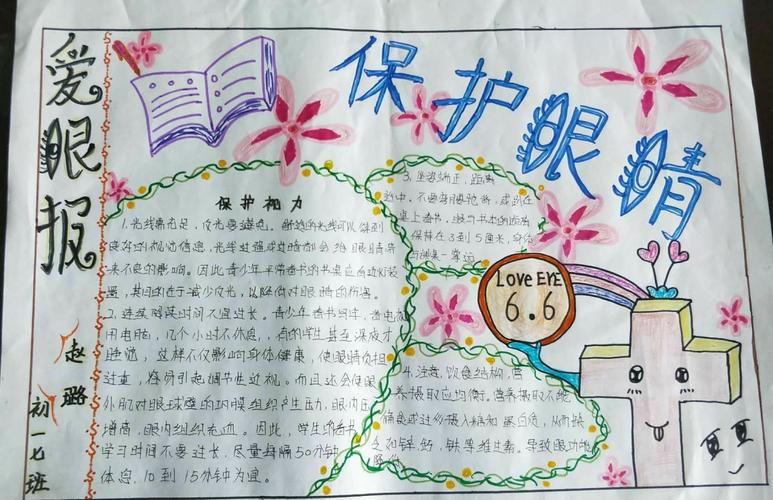 爱眼报
赵璐
初一七班
保护眼睛
保护视力
1.光线需充足,反光要避免。舒适的光线可以得到
良好的视觉信息,光线过强或过暗都会给眼睛带
来不良的影响。因此青少年平常看书的书桌应有边灯装
置,其目的在于减少反光,以降低对眼睛的伤害。
2.连续阅读时间不宜过长。青少年看书写字、看电视
用电脑,几个小时不休息,有的学生甚至深夜才
睡觉,这样不仅影响身体健康,使眼睛负担
过重,容易引起调节性近视。而且还会使眼
外肌对眼球壁的巩膜组织产生压力,眼内压
增高,眼内组织充血。因此,学生的看书
学习时间不要过长,尽量每隔50分钟
休息,10到15分钟为宜。
3.坐姿端正,距离
适中。不要弯腰驼背,或趴在
桌上看书,眼与书本的距离
保持在3到5厘米,身体
与桌一拳远
LOVE EYE
6.6
4.注意饮食结构,营
养摄取应均衡。营养摄取不能
偏食或过分摄入糖和蛋白质,从而缺
乏如锌、钙,铁等维生素。导致眼功能